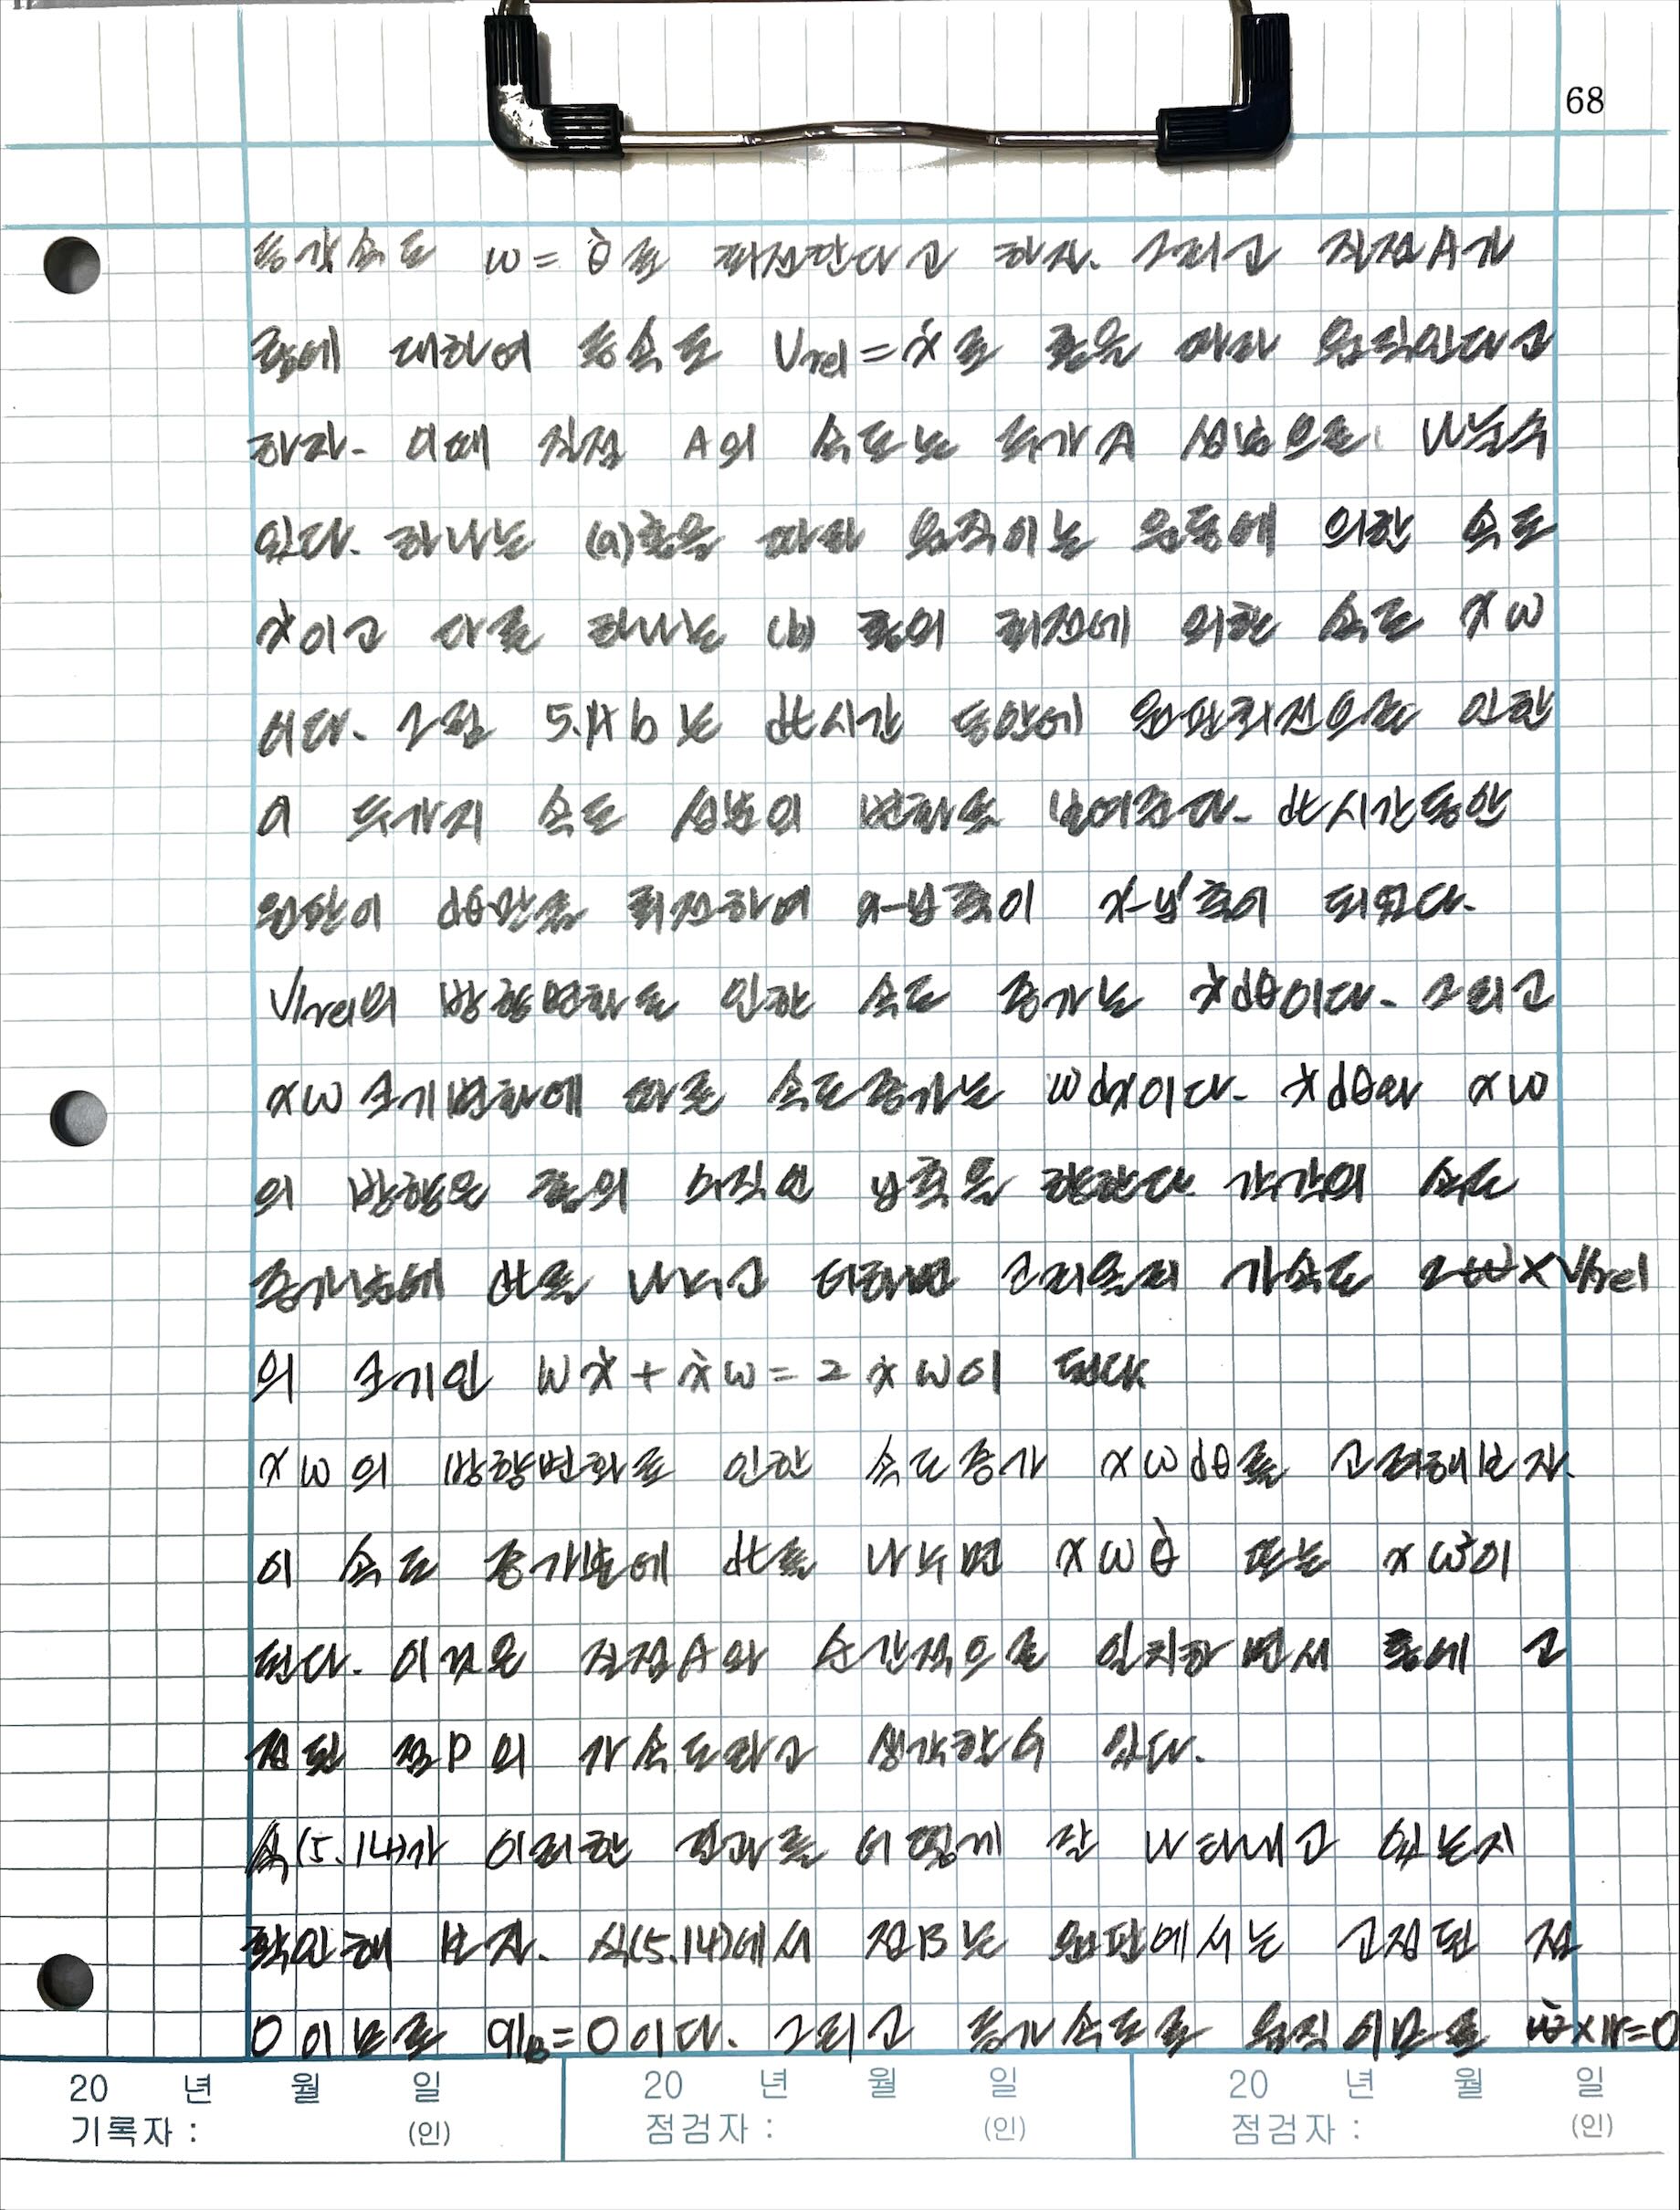 68
등각속도 ω = θ̇로 회전한다고 하자. 그리고 질점 A가
홈에 대하여 등속도 Vrel = ẋ로 홈을 따라 움직인다고
하자. 이때 질점 A의 속도는 두가지 성분으로 나눌수
있다. 하나는 (a)홈을 따라 움직이는 운동에 의한 속도
ẋ이고 다른 하나는 (b) 홈의 회전에 의한 속도 xω
이다. 그림 5.11 b는 dt시간 동안에 원판회전으로 인한
이 두가지 속도 성분의 변화를 보여준다. dt시간동안
원판이 dθ만큼 회전하여 x-y축이 x'-y'축이 되었다.
Vrel의 방향변화로 인한 속도 증가는 ẋdθ이다. 그리고
xω 크기변화에 따른 속도증가는 ωdx이다. ẋdθ와 xω
의 방향은 홈의 수직인 y축을 향한다. 각각의 속도
증가분에 dt를 나누고 더하면 코리올리 가속도 2ω×Vrel
의 크기인 ωẋ + ẋω = 2ẋω이 된다
xω의 방향변화로 인한 속도증가 xωdθ를 고려해보자.
이 속도 증가분에 dt를 나누면 xωθ̇ 또는 xω²이
된다. 이것은 질점A와 순간적으로 일치하면서 홈에 고
정된 점P의 가속도라고 생각할수 있다.
식(5.14)가 이러한 결과를 어떻게 잘 나타내고 있는지
확인해 보자. 식(5.14)에서 점B는 원판에서는 고정된 점
O이므로 aB=0이다. 그리고 등각속도로 움직이므로 ω̇×r=0
20 년 월 일 20 년 월 일 20 년 월 일
기록자 : (인) 점검자 : (인) 점검자 : (인)